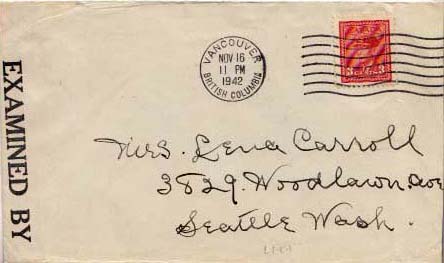 EXAMINED BY
VANCOUVER
NOV 16
11 PM
1942
BRITISH COLUMBIA
Mrs. Lena Carroll
3829. Woodlawn. Ave
Seattle Wash.